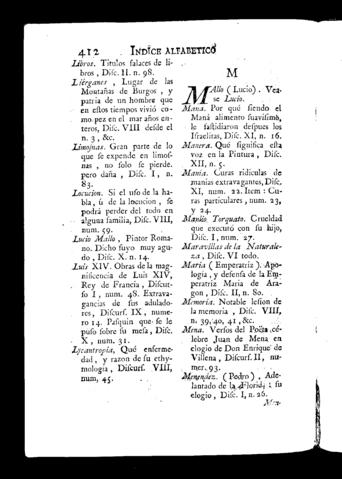 412 INDICE ALFABETICO
Libros. Titulos falaces de li-
bros, Disc. II. n. 98.
Liérganes, Lugar de las
Montañas de Burgos, y
patria de un hombre que
en estos tiempos vivió co-
mo pez en el mar años en-
teros, Disc. VIII desde el
n. 3, &c.
Limosnas. Gran parte de lo
que se expende en limos-
nas, no solo se pierde,
pero daña, Disc. I, n.
83.
Locucion. Si el uso de la ha-
bla, ù de la locucion, se
podrá perder del todo en
alguna familia, Disc. VIII,
num. 59.
Lucio Mallo, Pintor Roma-
no. Dicho suyo muy agu-
do, Disc. X. n. 14.
Luis XIV. Obras de la mag-
nificencia de Luis XIV,
Rey de Francia, Discur-
so I, num. 48. Extrava-
gancias de sus adulado-
res, Discurs. IX, nume-
ro 14. Pasquin que se le
puso sobre su mesa, Disc.
X, num. 31.
Lycantropía, Qué enferme-
dad, y razon de su ethy-
mologia, Discurs. VIII,
num, 45.
M
MAllo (Lucio). Vea-
se Lucio.
Mana. Por qué siendo el
Maná alimento suavisimo,
le fastidiaron despues los
Israelitas, Disc. XI, n. 16.
Manera. Qué significa esta
voz en la Pintura, Disc.
XII, n. 5.
Mania. Curas ridiculas de
manias extravagantes, Disc.
XI, num. 22. Item: Cu-
ras particulares, num. 23,
y 24.
Manlio Torquato. Crueldad
que executó con su hijo,
Disc. I, num. 27.
Maravillas de la Naturale-
za, Disc. VI todo.
Maria (Emperatriz). Apo-
logia, y defensa de la Em-
peratriz Maria de Ara-
gon, Disc. II, n. 80.
Memoria. Notable lesion de
la memoria, Disc. VIII,
n. 39, 40, 41, &c.
Mena. Versos del Poeta cé-
lebre Juan de Mena en
elogio de Don Enrique de
Villena, Discurs. II, nu-
mer. 93.
Menendez. (Pedro), Ade-
lantado de la Florida: su
elogio, Disc. I, n. 26.